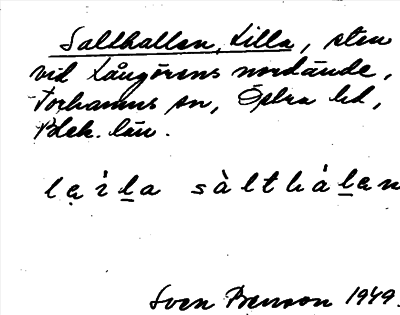 Salthallen, Lilla, sten
vid Långörens nordände,
Torhamns sn, Östra hd,
Blek. län.
lạ̀i ḻa sàlthàḻạn
Sven Benson 1949.